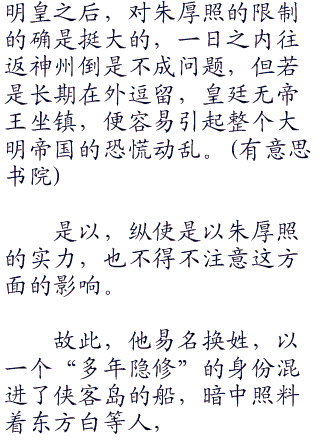 明皇之后，对朱厚照的限制
的确是挺大的，一日之内往
返神州倒是不成问题，但若
是长期在外逗留，皇廷无帝
王坐镇，便容易引起整个大
明帝国的恐慌动乱。(有意思
书院)
是以，纵使是以朱厚照
的实力，也不得不注意这方
面的影响。
故此，他易名换姓，以
一个“多年隐修”的身份混
进了侠客岛的船，暗中照料
着东方白等人，